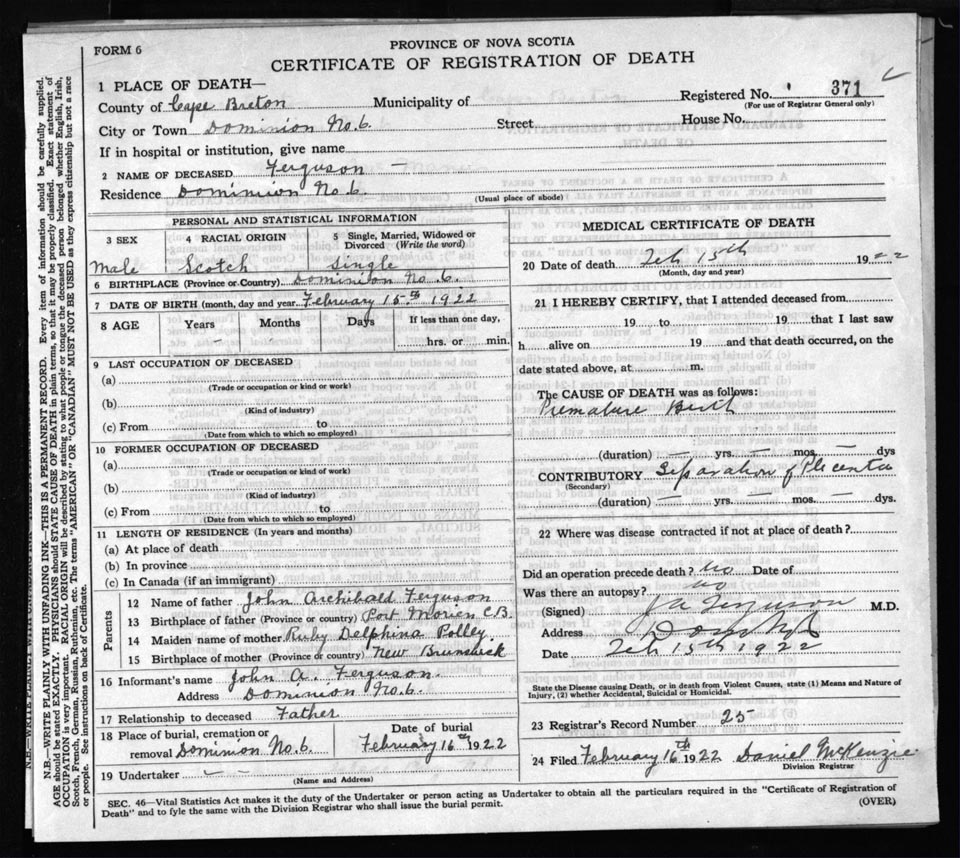 FORM 6
PROVINCE OF NOVA SCOTIA
CERTIFICATE OF REGISTRATION OF DEATH
1 PLACE OF DEATH—
Registered No. 371
(For use of Registrar General only)
County of Cape Breton Municipality of
City or Town Dominion No. 6. Street House No.
If in hospital or institution, give name
2 NAME OF DECEASED Ferguson —
Residence Dominion No. 6.
(Usual place of abode)
PERSONAL AND STATISTICAL INFORMATION
3 SEX 4 RACIAL ORIGIN 5 Single, Married, Widowed or Divorced (Write the word)
Male Scotch Single
6 BIRTHPLACE (Province or Country) Dominion No. 6.
7 DATE OF BIRTH (month, day and year) February 15th 1922
8 AGE Years Months Days If less than one day,
hrs. or min.
9 LAST OCCUPATION OF DECEASED
(a)
(Trade or occupation or kind or work)
(b)
(Kind of industry)
(c) From to
(Date from which to which so employed)
10 FORMER OCCUPATION OF DECEASED
(a)
(Trade or occupation or kind of work)
(b)
(Kind of industry)
(c) From to
(Date from which to which so employed)
11 LENGTH OF RESIDENCE (In years and months)
(a) At place of death
(b) In province
(c) In Canada (if an immigrant)
Parents
12 Name of father John Archibald Ferguson
13 Birthplace of father (Province or country) Port Morien C.B.
14 Maiden name of mother Ruby Delphina Polley.
15 Birthplace of mother (Province or country) New Brunswick
16 Informant's name John A. Ferguson.
Address Dominion No. 6.
17 Relationship to deceased Father
18 Place of burial, cremation or removal Dominion No. 6.
Date of burial February 16th 1922
19 Undertaker — —
(Name and Address)
MEDICAL CERTIFICATE OF DEATH
20 Date of death Feb 15th 1922
(Month, day and year)
21 I HEREBY CERTIFY, that I attended deceased from
19 to 19 that I last saw
h alive on 19 and that death occurred, on the
date stated above, at m.
The CAUSE OF DEATH was as follows:
Premature Birth
(duration) — yrs. — mos. — dys
CONTRIBUTORY Separation of Placenta
(Secondary)
(duration) — yrs. — mos. — dys.
22 Where was disease contracted if not at place of death?
Did an operation precede death? No Date of
Was there an autopsy? No
(Signed) J A Ferguson M.D.
Address
Date Feb 15th 1922
State the Disease causing Death, or in death from Violent Causes, state (1) Means and Nature of Injury, (2) whether Accidental, Suicidal or Homicidal.
23 Registrar's Record Number 25
24 Filed February 16th 1922 Daniel McKenzie
Division Registrar
SEC. 46—Vital Statistics Act makes it the duty of the Undertaker or person acting as Undertaker to obtain all the particulars required in the "Certificate of Registration of
Death" and to fyle the same with the Division Registrar who shall issue the burial permit.
(OVER)
N.B.—WRITE PLAINLY WITH UNFADING INK—THIS IS A PERMANENT RECORD. Every item of information should be carefully supplied.
AGE should be stated EXACTLY. PHYSICIANS should STATE CAUSE OF DEATH in plain terms, so that it may be properly classified. Exact statement of
OCCUPATION is very important. RACIAL ORIGIN will be described by stating to what people or tongue the deceased person belonged whether English, Irish,
Scotch, French, German, Russian, Ruthenian, etc. The terms "AMERICAN" OR "CANADIAN" MUST NOT BE USED as they express citizenship but not a race
or people. See instructions on back of Certificate.